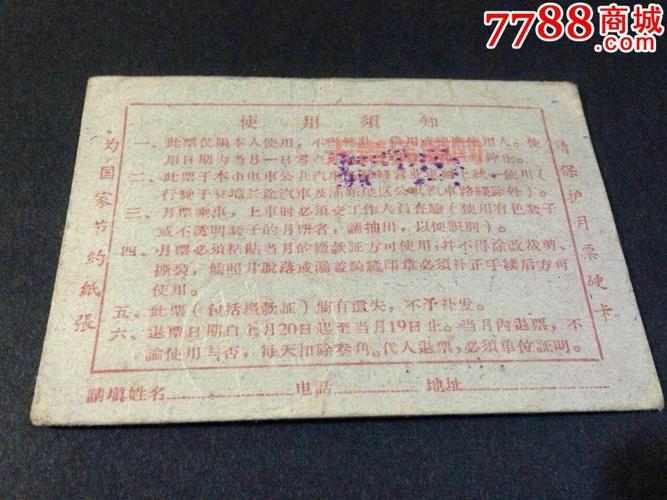 7788商城
使用須知
为国家节約紙張
請保护月票硬卡
一、此票仅限本人使用，不 使用人。使
用日期为当月一日 止。
二、此票于本市电車公共汽車 使用（
行駛于 長途汽車及浦东地区公共汽車路綫除外）。
三、月票乘車，上車时必須交工作人員查驗（使用有色套子
或不透明套子的月票者，請抽出，以便識別）。
四、月票必須粘貼当月的繳款証方可使用，幷不得涂改裁剪、
撕裂，倘照片脫落或漏盖騎縫印章必須补正手續后方可
使用。
五、此票（包括繳款証）倘有遺失，不予补发。
六、退票日期自上月20日起至当月19日止。当月內退票，不
論使用与否，每天扣除叁角。代人退票，必須单位証明。
請塡姓名 电話 地址